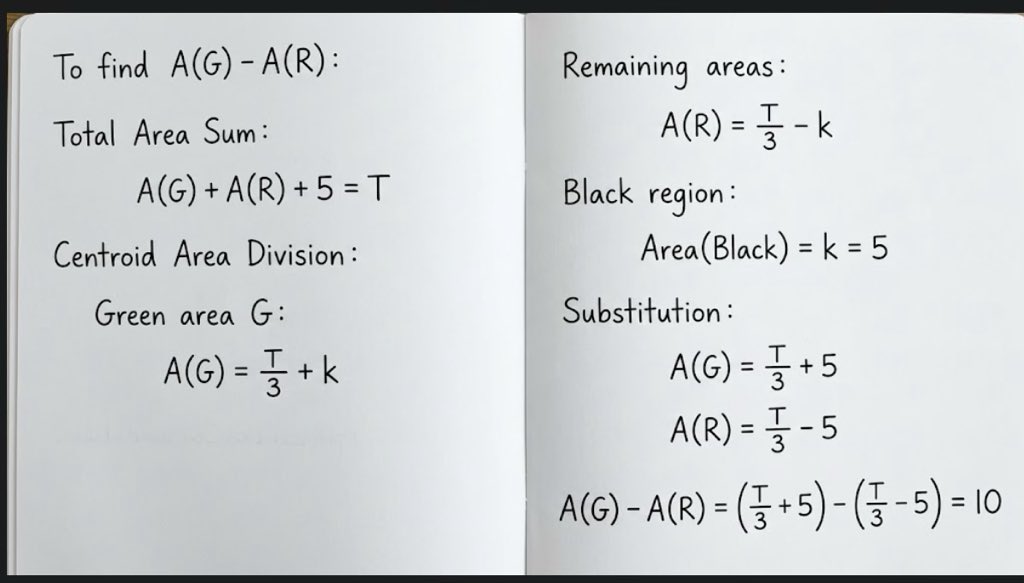 To find A(G) - A(R):
Total Area Sum:
A(G) + A(R) + 5 = T
Centroid Area Division:
Green area G:
A(G) = T/3 + k
Remaining areas:
A(R) = T/3 - k
Black region:
Area(Black) = k = 5
Substitution:
A(G) = T/3 + 5
A(R) = T/3 - 5
A(G) - A(R) = (T/3 + 5) - (T/3 - 5) = 10